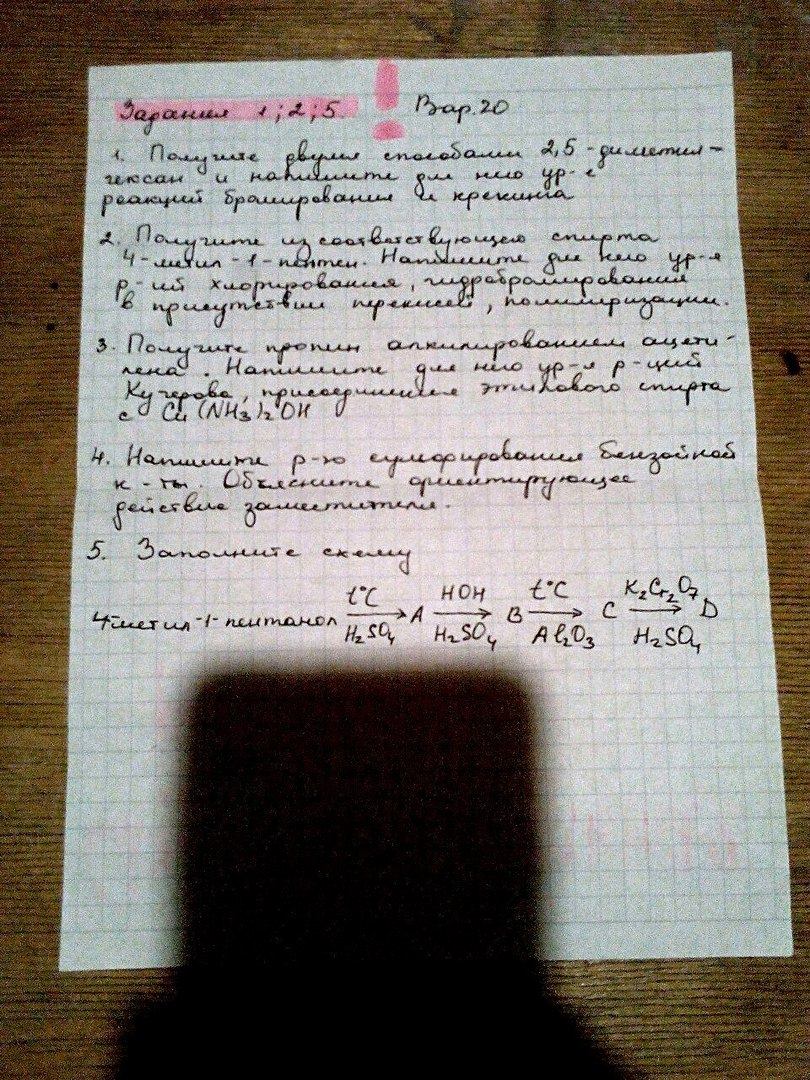 Задания 1; 2; 5. ! Вар. 20
1. Получите двумя способами 2,5-диметил-
гексан и напишите для него ур-е
реакций бромирования и крекинга
2. Получите из соответствующего спирта
4-метил-1-пентен. Напишите для него ур-я
р-ий хлорирования, гидробромирования
в присутствии перекисей, полимиризации.
3. Получите пропин алкилированием ацети-
лена. Напишите для него ур-я р-ций
Кучерова, присоединения этилового спирта
с Cu(NH3)2OH
4. Напишите р-ю сульфирования бензойной
к-ты. Объясните ориентирующее
действие заместителя.
5. Заполните схему
4-метил-1-пентанол t°C H2SO4 → A HOH H2SO4 → B t°C Al2O3 → C K2Cr2O7 H2SO4 → D